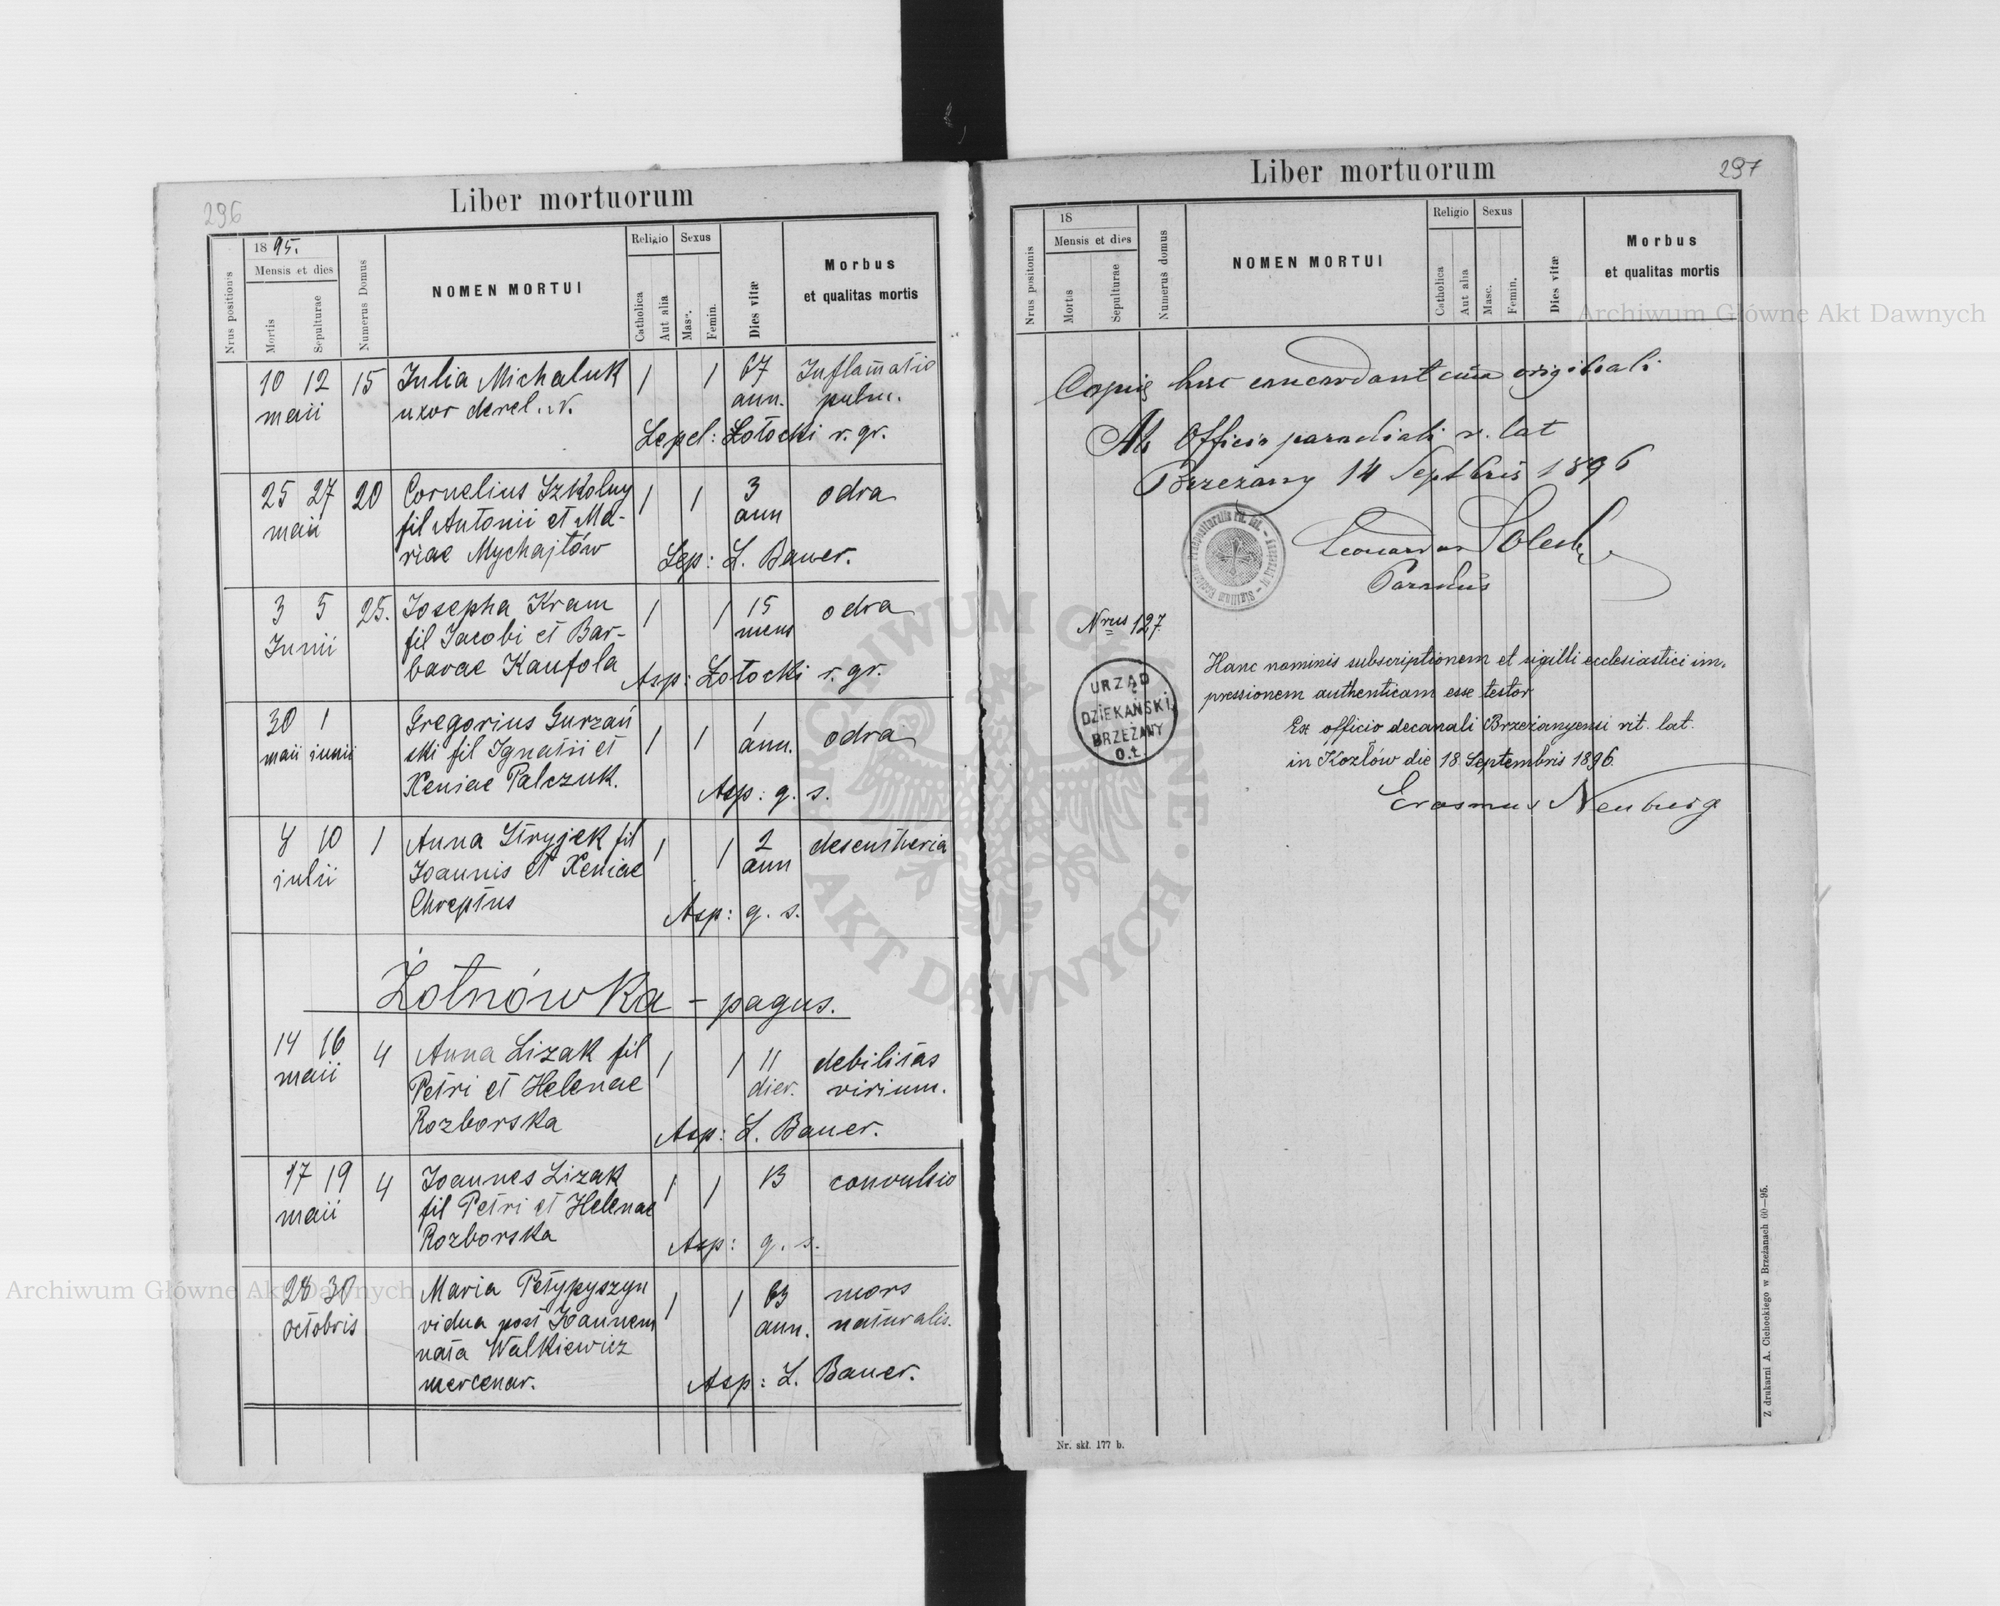 296
Liber mortuorum
Nrus positionis
1895.
Mensis et dies
Mortis
Sepulturae
Numerus Domus
NOMEN MORTUI
Religio
Catholica
Aut alia
Sexus
Masc.
Femin.
Dies vitæ
Morbus
et qualitas mortis
10 12 15 Julia Michaluk 1 1 67 Inflamatio
maii uxor derel. ann. pulm.
Sepel: Łotocki r. gr.
25 27 20 Cornelius Szkolny 1 1 3 odra
maii fil Antonii et Ma- ann
riae Mychajłów Sep: L. Bauer.
3 5 25. Josepha Kram 1 1 15 odra
Junii fil Jacobi et Bar- mens
barae Kaufola Asp: Łotocki r. gr.
30 1 Gregorius Gurzań 1 1 1 odra
maii junii ski fil Ignatii et ann.
Xeniae Palczuk. Asp: q. s.
8 10 1 Anna Stryjek fil 1 1 2 desentheria
julii Joannis et Xeniae ann
Chreptus Asp: q. s.
Żołnówka - pagus.
14 16 4 Anna Lizak fil 1 1 11 debilitas
maii Petri et Helenae dier. virium.
Rozborska Asp: L. Bauer.
17 19 4 Joannes Lizak 1 1 13 convulsio
maii fil Petri et Helenae
Rozborska Asp: q. s.
28 30 Maria Petypyszyn 1 1 63 mors
octobris vidua post Joannem ann. naturalis.
nata Walkiewicz
mercenar. Asp: L. Bauer.
297
Liber mortuorum
Nrus positonis
18
Mensis et dies
Mortis
Sepulturae
Numerus domus
NOMEN MORTUI
Religio
Catholica
Aut alia
Sexus
Masc.
Femin.
Dies vitæ
Morbus
et qualitas mortis
Archiwum Główne Akt Dawnych
Copie haec concordant cum originali
Ab Officio parochiali r. lat
Brzeżany 14 Septbris 1896
Leonardus Solecki
Parochus
Nrus 127.
Hanc nominis subscriptionem et sigilli ecclesiastici im-
pressionem authenticam esse testor
Ex officio decanali Brzeżanyensi rit. lat.
in Kozłów die 18 Septembris 1896.
Erasmus Neuburg
URZĄD
DZIEKAŃSKI
BRZEŻANY
O.Ł.
ARCHIWUM GŁÓWNE AKT DAWNYCH
Archiwum Główne Akt Dawnych
Nr. skł. 177 b.
Z drukarni A. Cichockiego w Brzeżanach 60—95.